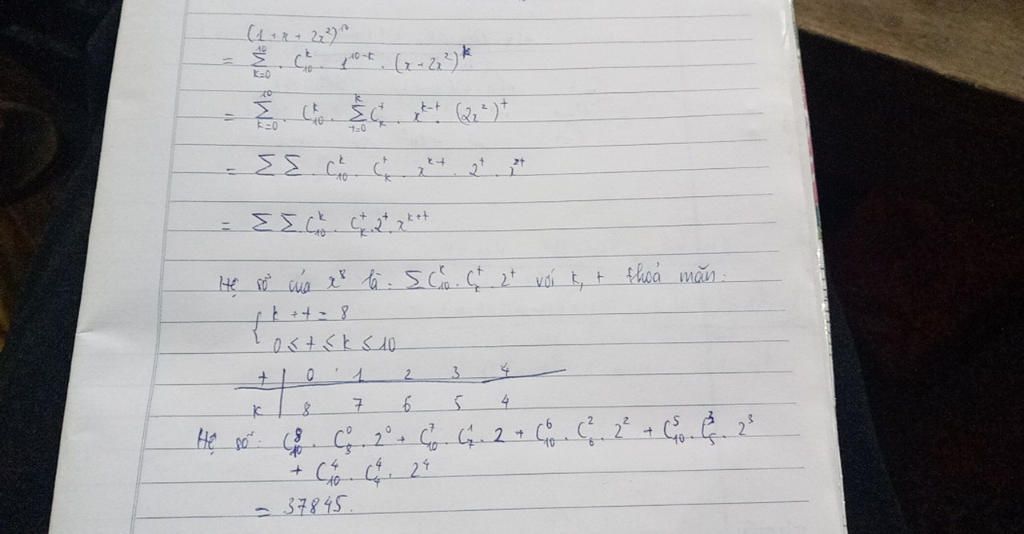 (1 + x + 2x²)¹⁰
= ∑_{k=0}^{10} . C_{10}^{k} . 1^{10-k} . (x + 2x²)^{k}
= ∑_{k=0}^{10} . C_{10}^{k} . ∑_{t=0}^{k} C_{k}^{t} . x^{k-t} . (2x²)^{t}
= ∑ ∑ . C_{10}^{k} . C_{k}^{t} . x^{k-t} . 2^{t} . x^{2t}
= ∑ ∑ . C_{10}^{k} . C_{k}^{t} . 2^{t} . x^{k+t}
Hệ số của x⁸ là . ∑ C_{10}^{k} . C_{k}^{t} . 2^{t} với k, t thoả mãn:
{ k + t = 8
0 ≤ t ≤ k ≤ 10
t | 0 1 2 3 4
k | 8 7 6 5 4
Hệ số: C_{10}^{8} . C_{8}^{0} . 2⁰ + C_{10}^{7} . C_{7}^{1} . 2 + C_{10}^{6} . C_{6}^{2} . 2² + C_{10}^{5} . C_{5}^{3} . 2³
+ C_{10}^{4} . C_{4}^{4} . 2⁴
= 37845.